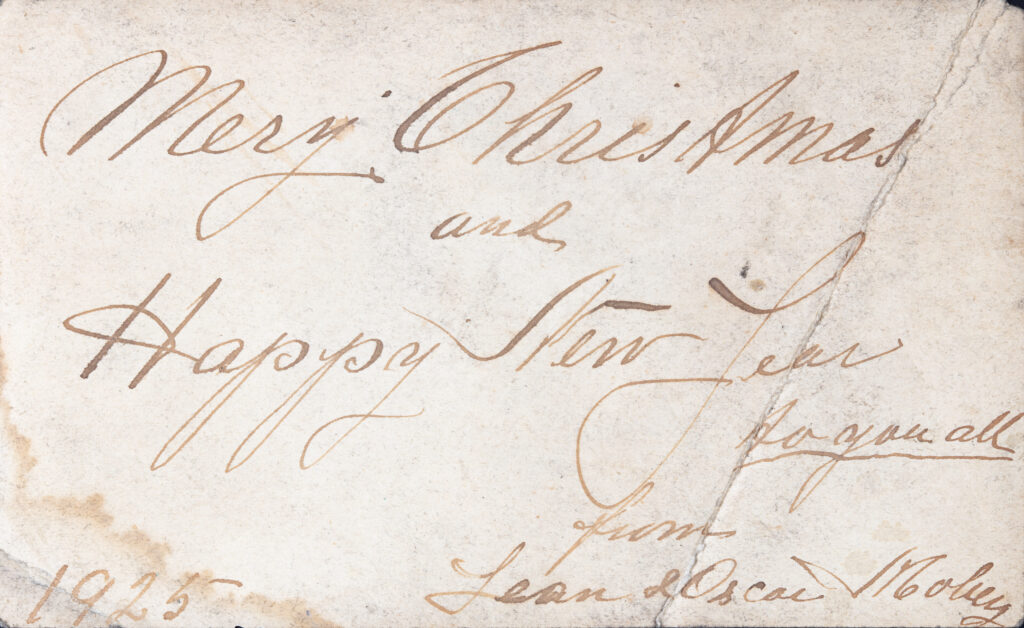 Mery Christmas
and
Happy New Year
to you all
from
Jean & Oscar Mobey
1925